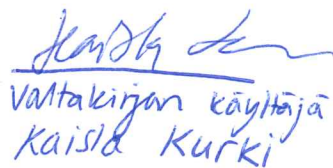 valtakirjan käyttäjä
Kaisla Kurki